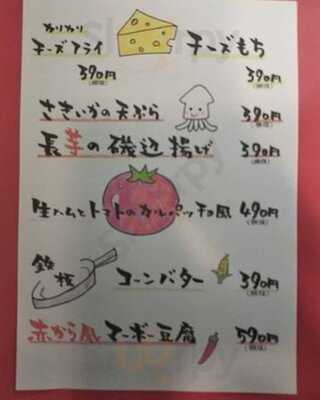 カリカリ
チーズフライ チーズもち
390円 390円
さきいかの天ぷら 390円
長芋の磯辺揚げ 390円
生ハムとトマトのカルパッチョ風 490円
鉄板 コーンバター 390円
赤から風 マーボー豆腐 590円